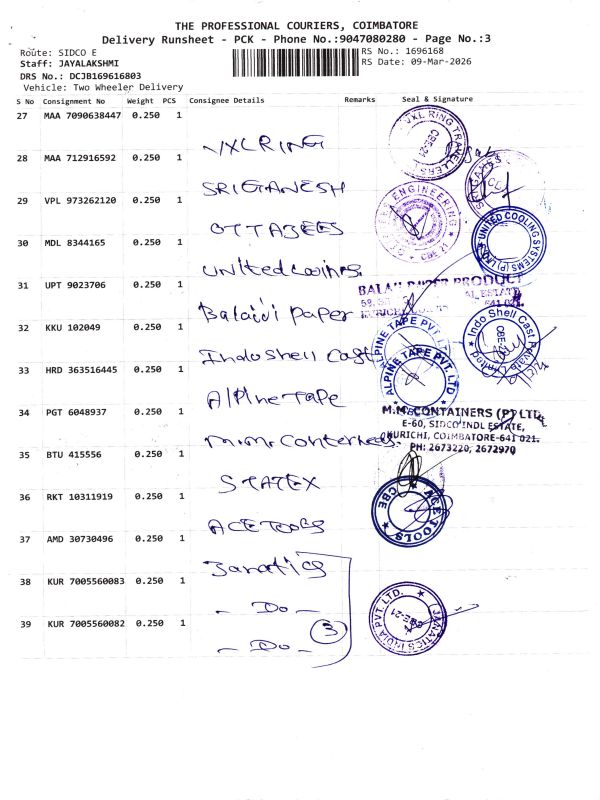 THE PROFESSIONAL COURIERS, COIMBATORE
Delivery Runsheet - PCK - Phone No.:9047080280 - Page No.:3
Route: SIDCO E
Staff: JAYALAKSHMI
DRS No.: DCJB169616803
Vehicle: Two Wheeler Delivery
RS No.: 1696168
RS Date: 09-Mar-2026
S No Consignment No Weight PCS Consignee Details Remarks Seal & Signature
27 MAA 7090638447 0.250 1
JXL RING
JXL RING TRAVELLERS
CBE-21
28 MAA 712916592 0.250 1
SRIGANESH
29 VPL 973262120 0.250 1
OTTABEES
ENGINEERING
30 MDL 8344165 0.250 1
United coolings
UNITED COOLING SYSTEMS (P) LTD.
31 UPT 9023706 0.250 1
Balaji paper
BALAJI PAPER PRODUCT
32 KKU 102049 0.250 1
Indo shell Cast
Indo Shell Cast Private Limited
CBE-21
33 HRD 363516445 0.250 1
Alpine TAPE
ALPINE TAPE PVT. LTD
34 PGT 6048937 0.250 1
M.M. Conteners
M.M. CONTAINERS (P) LTD,
E-60, SIDCO INDL ESTATE,
KURICHI, COIMBATORE-641 021.
PH: 2673220, 2672970
35 BTU 415556 0.250 1
STATEX
36 RKT 10311919 0.250 1
ACE TOOLS
ACE TOOLS
CBE
37 AMD 30730496 0.250 1
Janatics
38 KUR 7005560083 0.250 1
- Do -
39 KUR 7005560082 0.250 1
- Do -
3
JANATICS INDIA PVT. LTD.
CBE-21